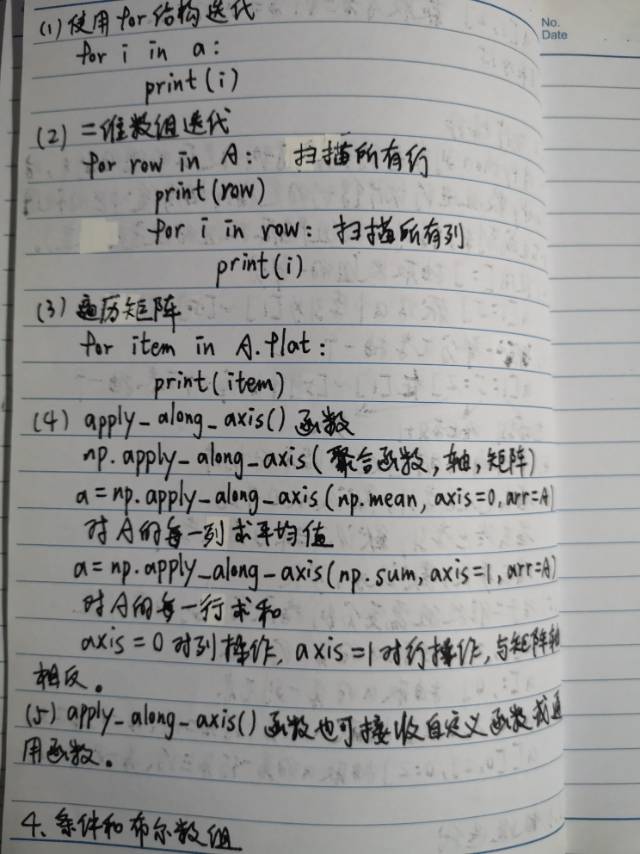 No.
Date
(1) 使用for结构迭代
for i in a:
print(i)
(2) 二维数组迭代
for row in A: 扫描所有行
print(row)
for i in row: 扫描所有列
print(i)
(3) 遍历矩阵
for item in A.flat:
print(item)
(4) apply_along_axis() 函数
np.apply_along_axis(聚合函数,轴,矩阵)
a=np.apply_along_axis(np.mean, axis=0, arr=A)
对A的每一列求平均值
a=np.apply_along_axis(np.sum, axis=1, arr=A)
对A的每一行求和
axis=0对列操作, axis=1对行操作, 与矩阵轴
相反。
(5) apply_along_axis() 函数也可接收自定义函数或通
用函数。
4、条件和布尔数组